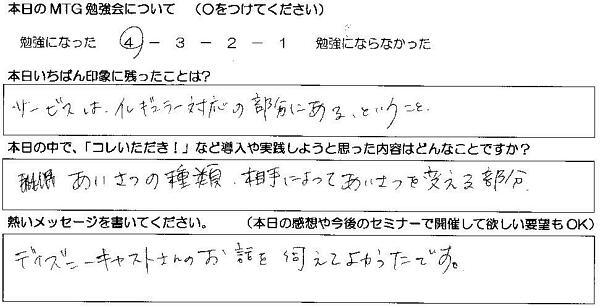 本日のMTG勉強会について （○をつけてください）
勉強になった ④ － 3 － 2 － 1 勉強にならなかった
本日いちばん印象に残ったことは?
サービスは、イレギュラー対応の部分にある、ということ。
本日の中で、「コレいただき！」など導入や実践しようと思った内容はどんなことですか?
あいさつの種類、相手によってあいさつを変える部分。
熱いメッセージを書いてください。 （本日の感想や今後のセミナーで開催して欲しい要望もOK）
ディズニーキャストさんのお話を伺えてよかったです。